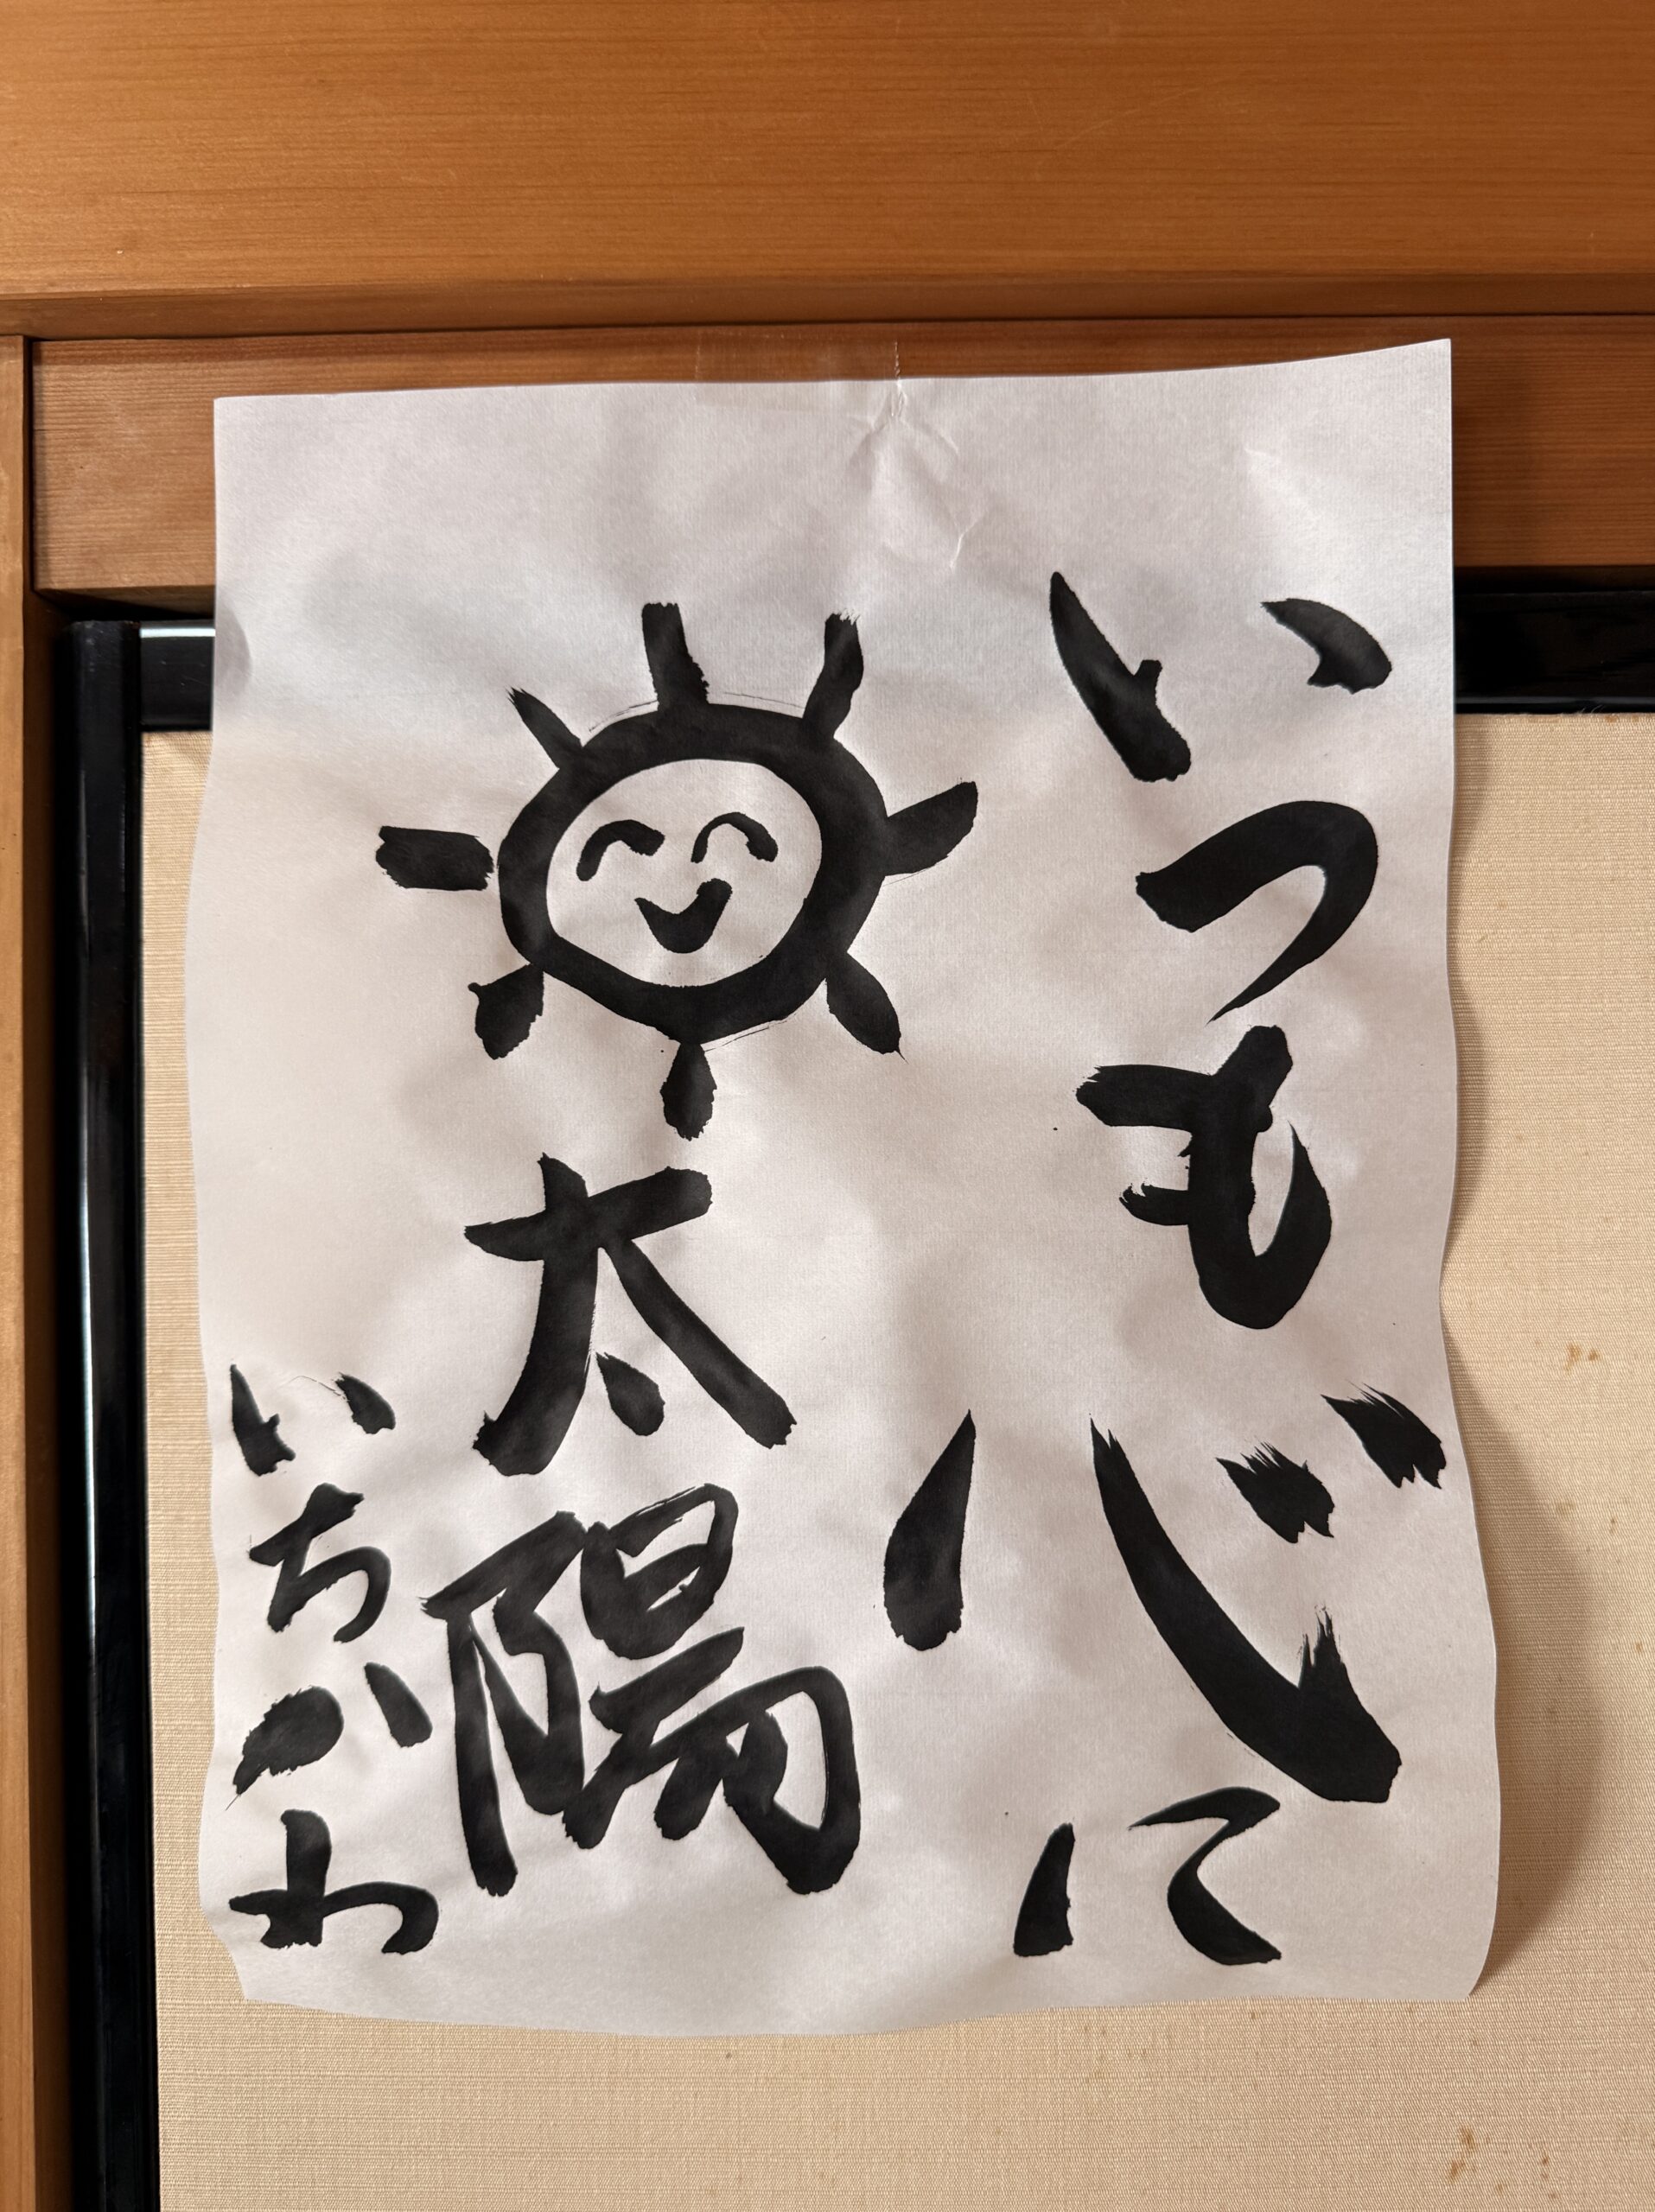 いつも心に
太陽
いちかわ